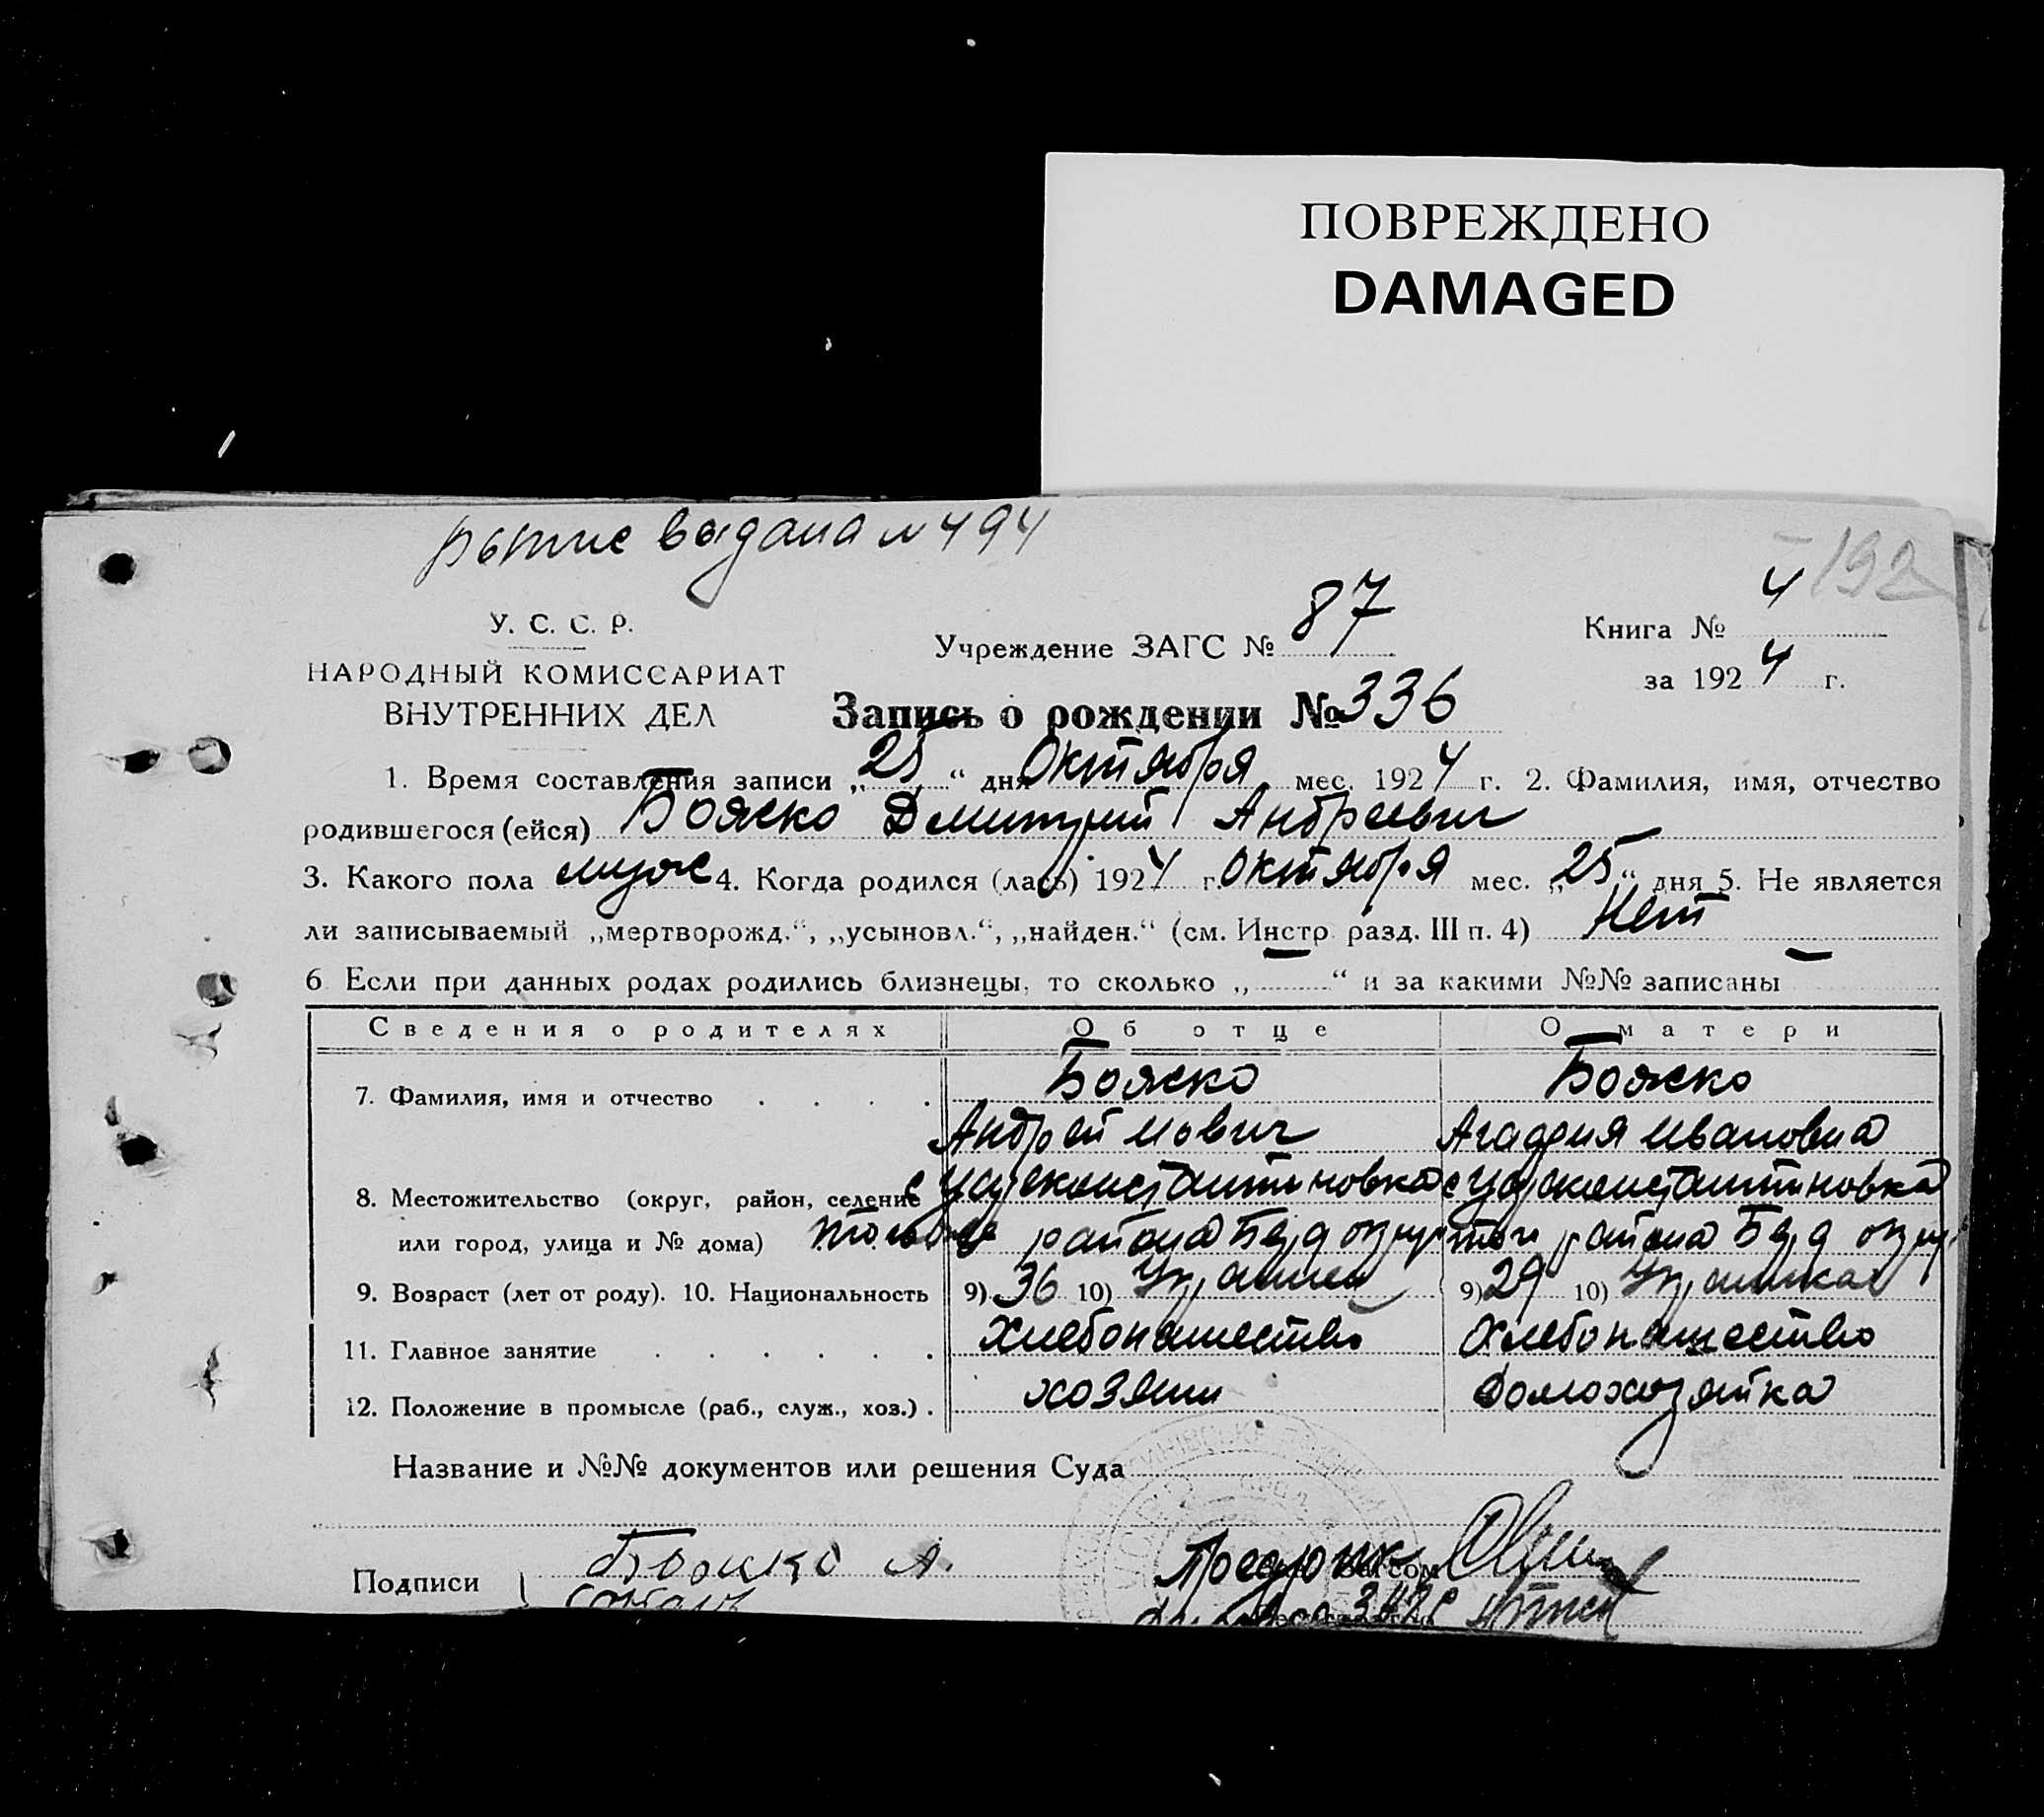 ПОВРЕЖДЕНО
DAMAGED
выдана № 494
192
У. С. С. Р.
НАРОДНЫЙ КОМИССАРИАТ
ВНУТРЕННИХ ДЕЛ
Учреждение ЗАГС № 87
Книга № 4
за 1924 г.
Запись о рождении № 336
1. Время составления записи „25“ дня Октября мес. 1924 г. 2. Фамилия, имя, отчество
родившегося (ейся) Бояско Дмитрий Андреевич
3. Какого пола муж 4. Когда родился (лась) 1924 г. Октября мес. „25“ дня 5. Не является
ли записываемый „мертворожд.“, „усыновл.“, „найден.“ (см. Инстр. разд. III п. 4) Нет
6 Если при данных родах родились близнецы, то сколько „ — “ и за какими №№ записаны —
Сведения о родителях Об отце О матери
7. Фамилия, имя и отчество . . . . Бояско Бояско
Андрей Агафия Ивановна
8. Местожительство (округ, район, селение с Цареконстантиновка с Цареконстантиновка
или город, улица и № дома) того же района Берд округ того района Берд округ
9. Возраст (лет от роду). 10. Национальность 9) 36 10) Украинец 9) 29 10) Украинка
11. Главное занятие . . . . . . Хлебопашество Хлебопашество
12. Положение в промысле (раб., служ., хоз.) . хозяин домохозяйка
Название и №№ документов или решения Суда
Подписи Бояско А.